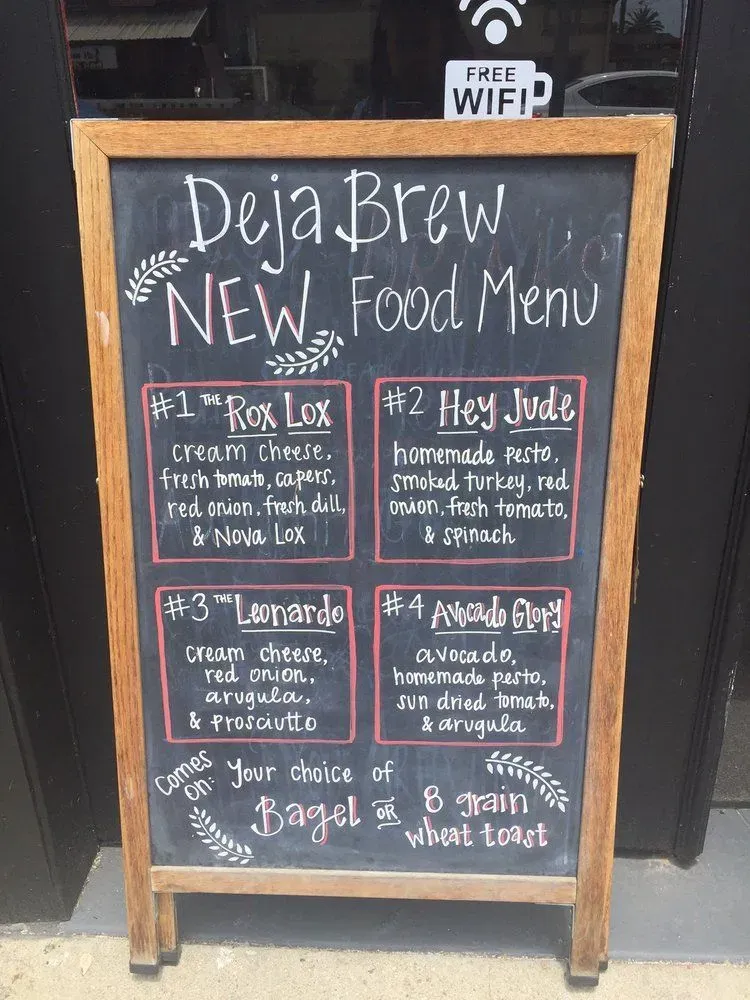 FREE
WIFI
Deja Brew
NEW Food Menu
#1 THE Rox Lox
cream cheese,
fresh tomato, capers,
red onion, fresh dill,
& Nova Lox
#2 Hey Jude
homemade pesto,
smoked turkey, red
onion, fresh tomato,
& spinach
#3 THE Leonardo
cream cheese,
red onion,
arugula,
& prosciutto
#4 Avocado Glory
avocado,
homemade pesto,
sun dried tomato,
& arugula
Comes
on: Your choice of
Bagel OR 8 grain
wheat toast